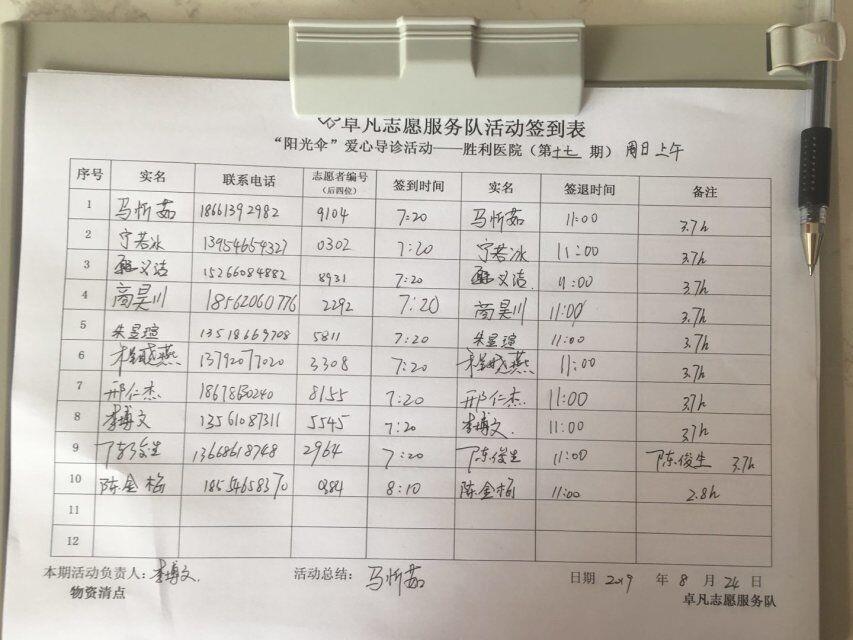 卓凡志愿服务队活动签到表
“阳光伞”爱心导诊活动——胜利医院（第十七期）周日上午
序号 实名 联系电话 志愿者编号（后四位） 签到时间 实名 签退时间 备注
1 马忻茹 18661392982 9104 7:20 马忻茹 11:00 3.7h
2 宁若冰 13954654327 0302 7:20 宁若冰 11:00 3.7h
3 义洁 15266084882 8931 7:20 义洁 11:00 3.7h
4 商昊川 18562060776 2292 7:20 商昊川 11:00 3.7h
5 朱昱瑄 13518669708 5811 7:20 朱昱瑄 11:00 3.7h
6 燕 13792077020 3308 7:20 燕 11:00 3.7h
7 邢仁杰 18678630240 8155 7:20 邢仁杰 11:00 3.7h
8 李博文 13561087311 5545 7:20 李博文 11:00 3.7h
9 陈俊生 13668618748 2964 7:20 陈俊生 11:00 陈俊生 3.7h
10 陈金梅 18554658370 0384 8:10 陈金梅 11:00 2.8h
11
12
本期活动负责人：李博文 活动总结：马忻茹 日期 2019 年 8 月 24 日
物资清点 卓凡志愿服务队